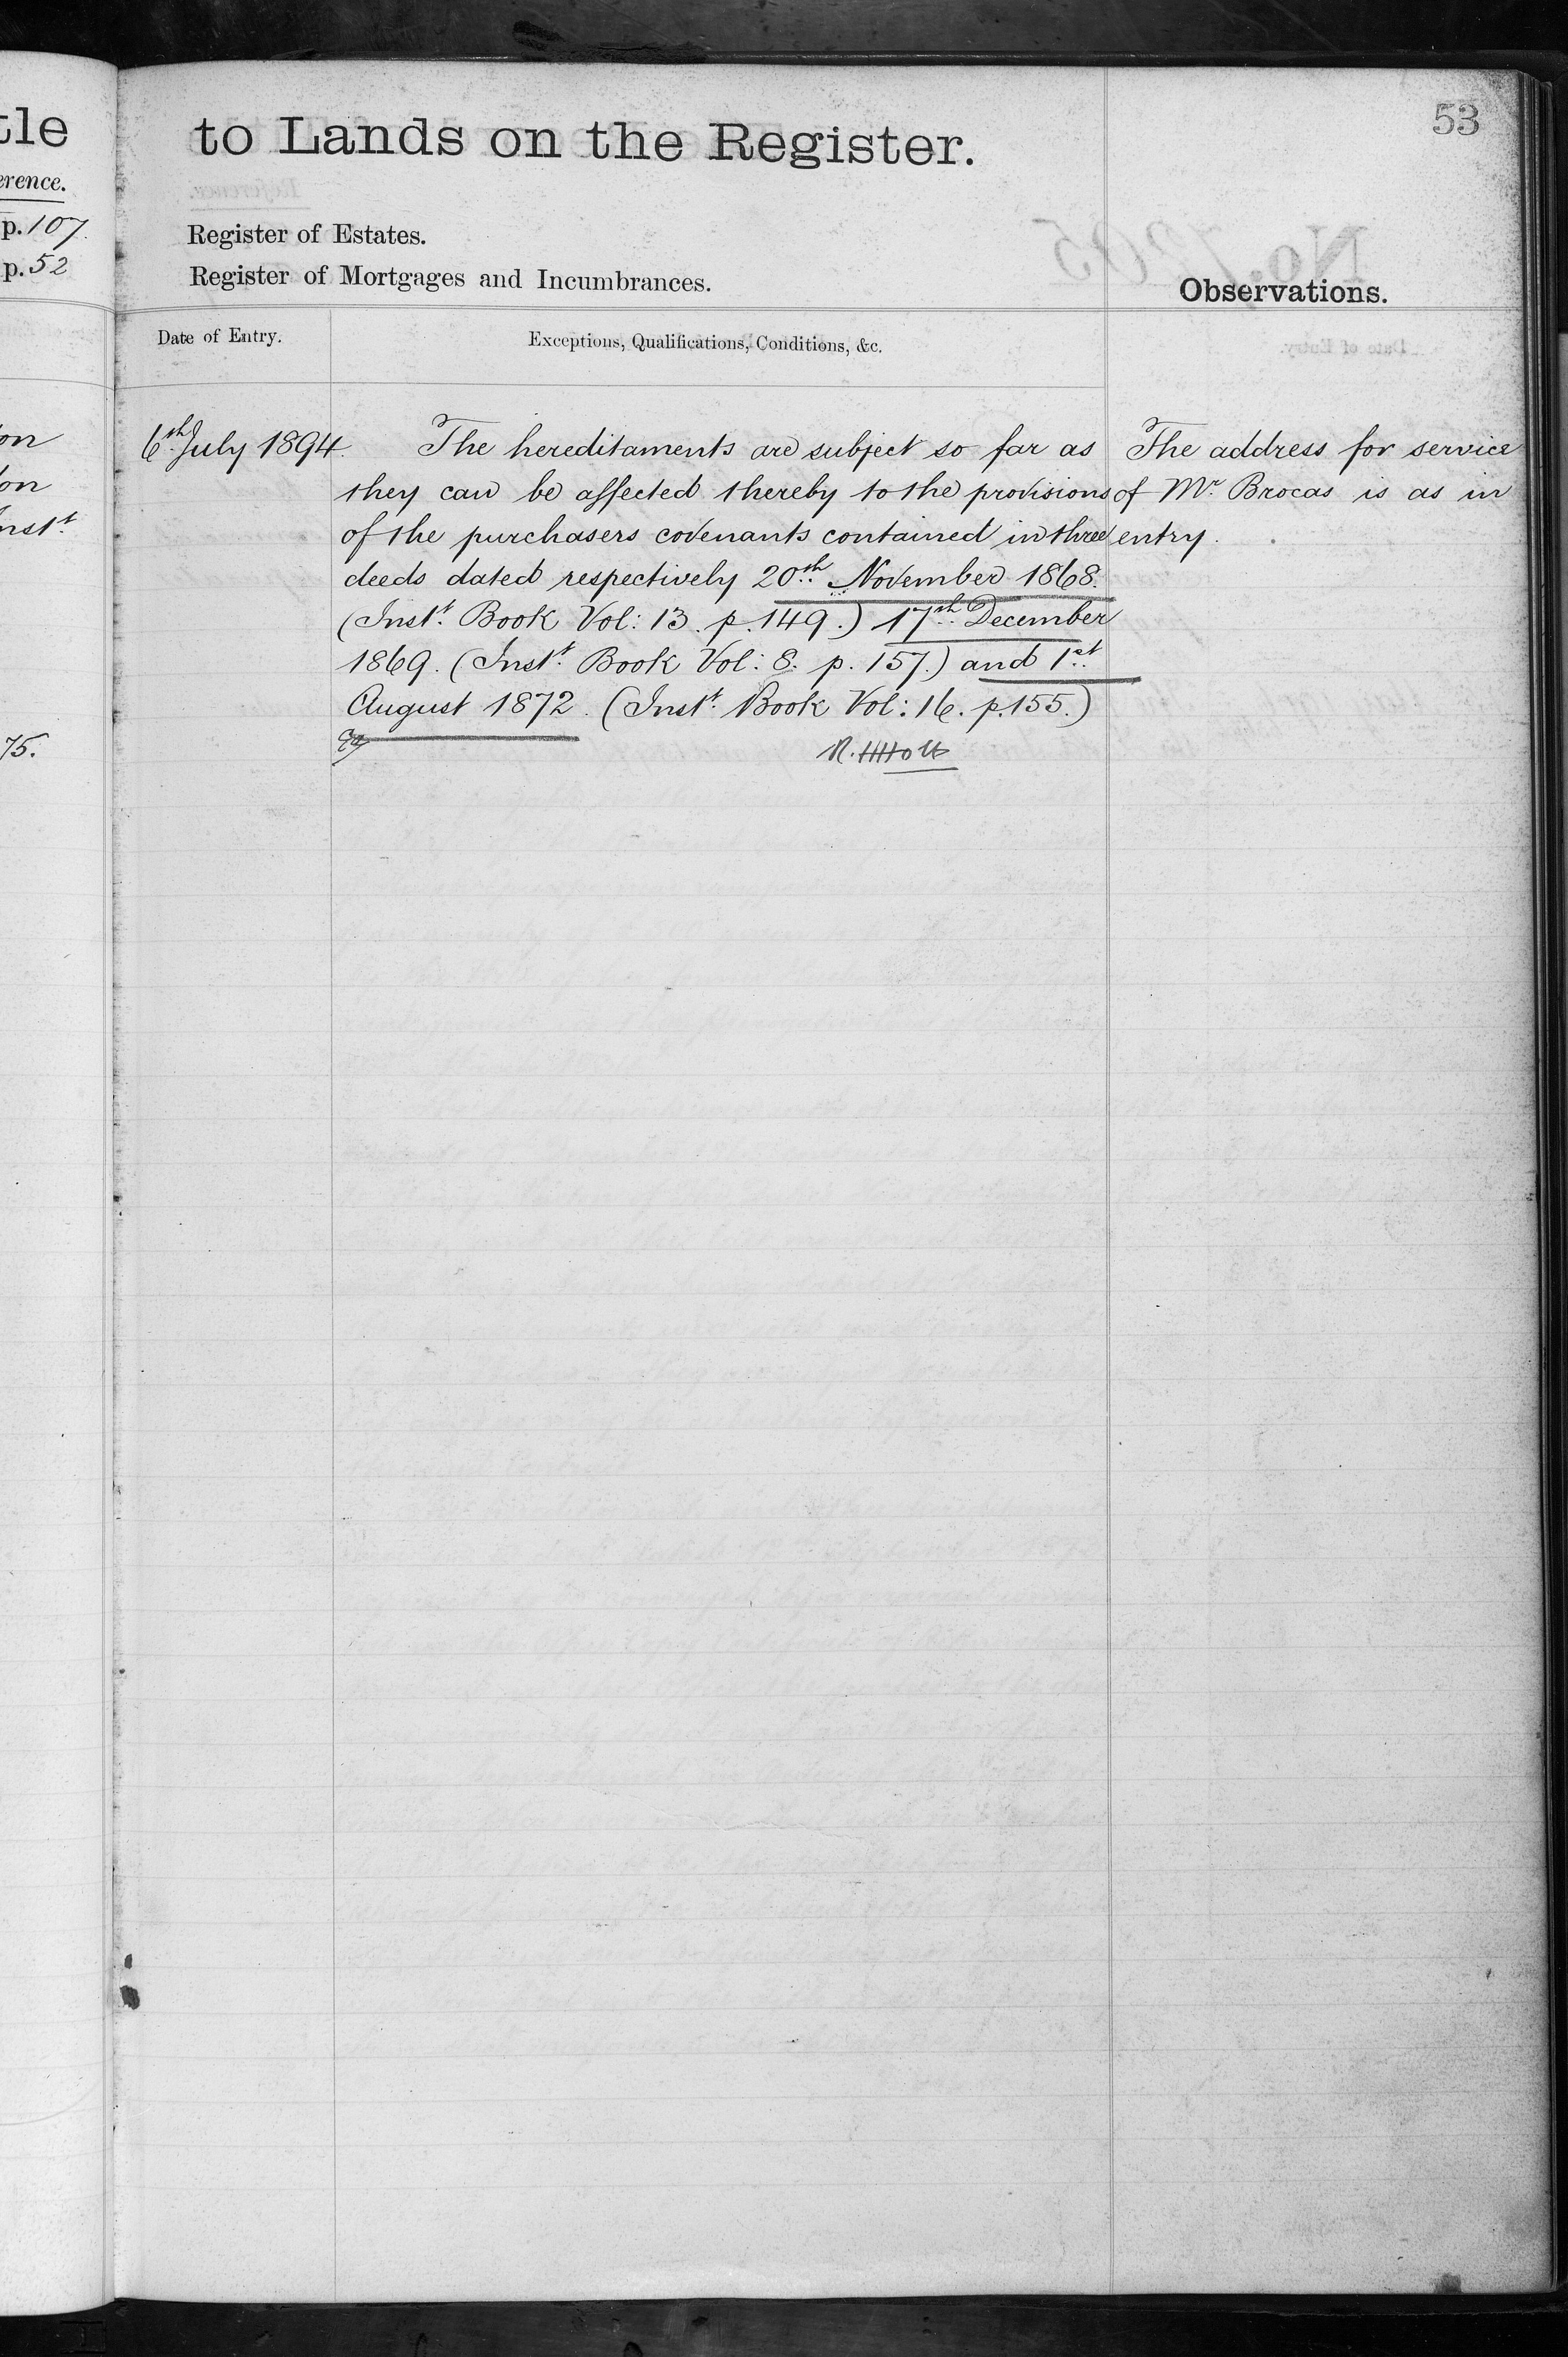 53
to Lands on the Register.
Register of Estates.
Register of Mortgages and Incumbrances.
Observations.
Date of Entry.
Exceptions, Qualifications, Conditions, &c.
6th July 1894.
The hereditaments are subject so far as
they can be affected thereby to the provisions
of the purchasers covenants contained in three
deeds dated respectively 20th November 1868.
(Instt. Book Vol: 13. p. 149.) 17th December
1869. (Instt. Book Vol: 8. p. 157.) and 1st
August 1872. (Instt. Book Vol: 16. p. 155.)
The address for service
of Mr. Brocas is as in
entry.
tle
erence.
p. 107.
p. 52
on
on
nstt.
75.